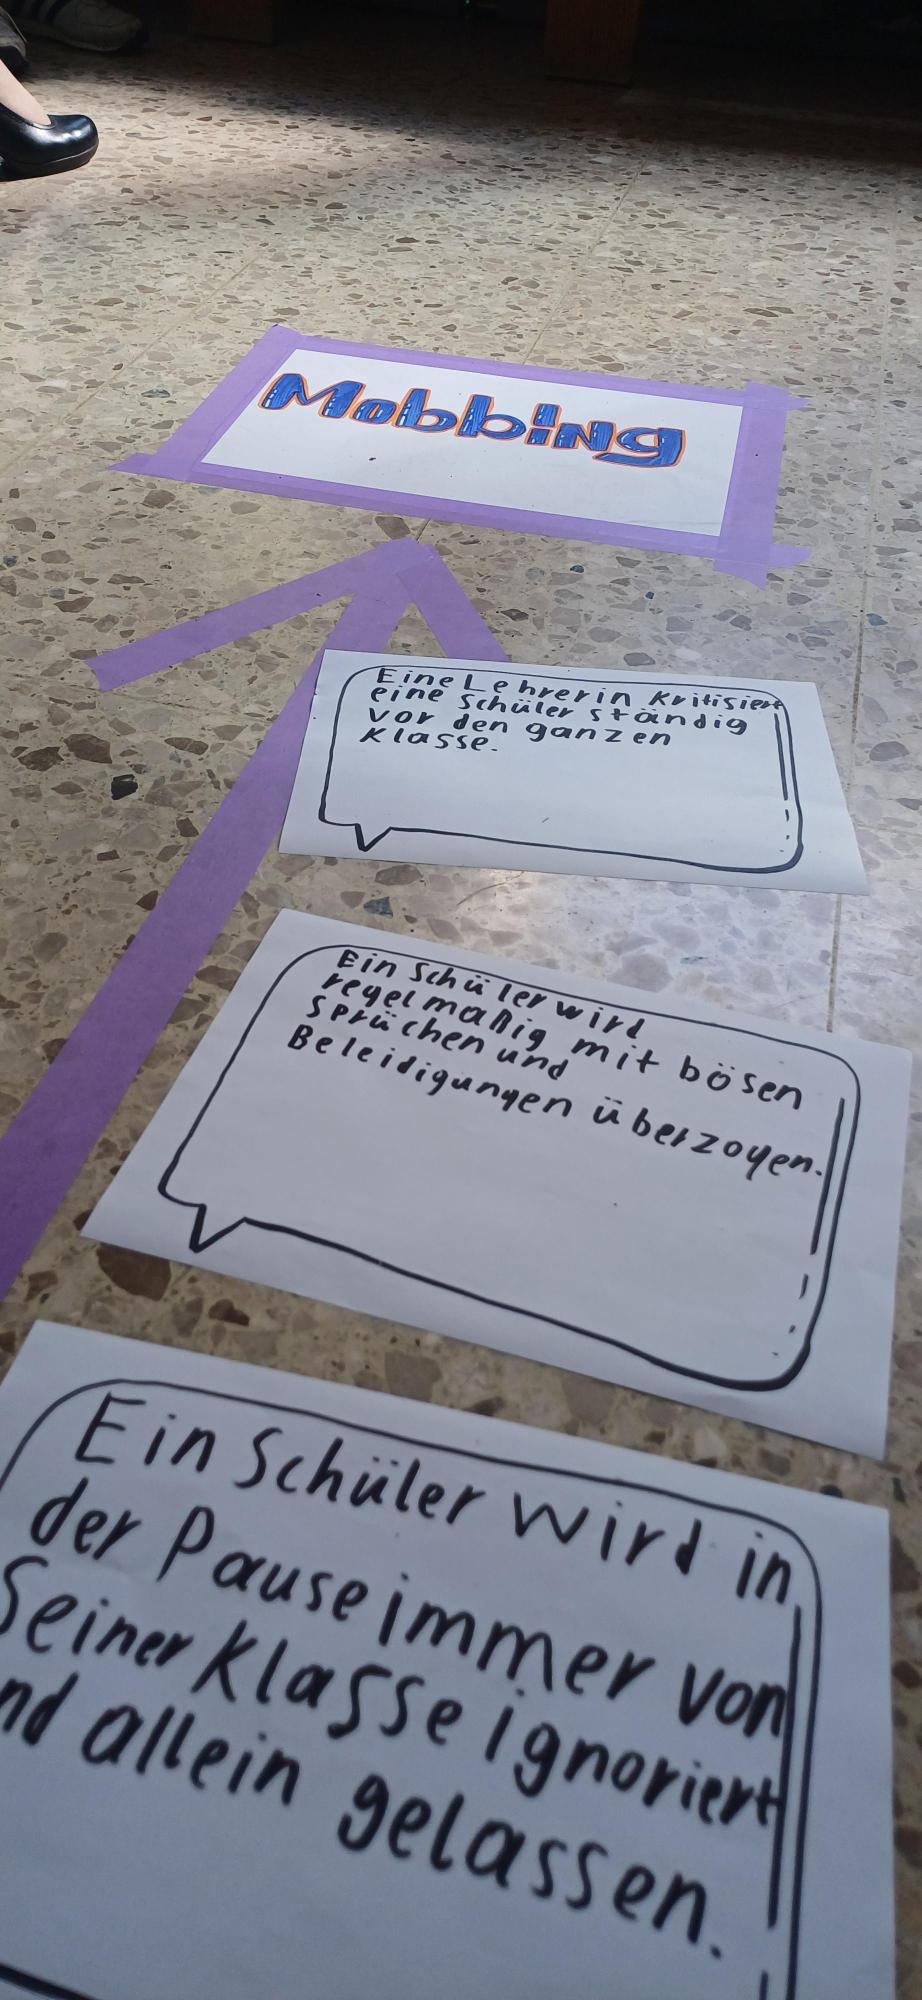 Mobbing
Eine Lehrerin kritisiert
eine Schüler ständig
vor den ganzen
Klasse.
Ein Schüler wird
regelmäßig mit bösen
Sprüchen und
Beleidigungen überzogen.
Ein Schüler wird in
der Pause immer von
Seiner Klasse ignoriert
nd allein gelassen.